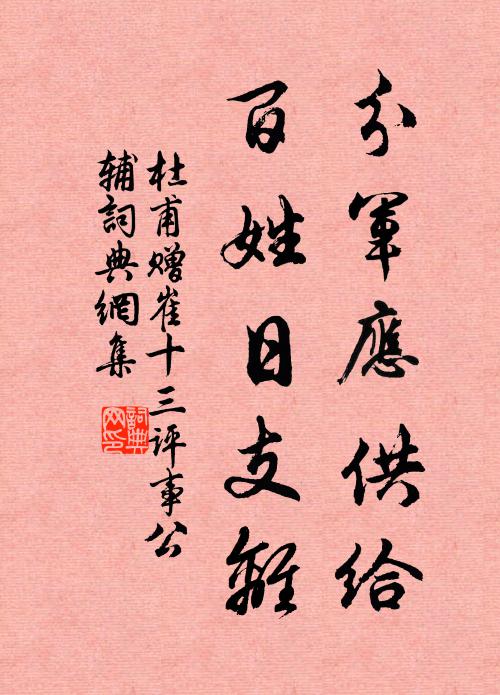 分軍應供給
百姓日支離
杜甫赠崔十三评事公
辅詞典網集
詞典
网印